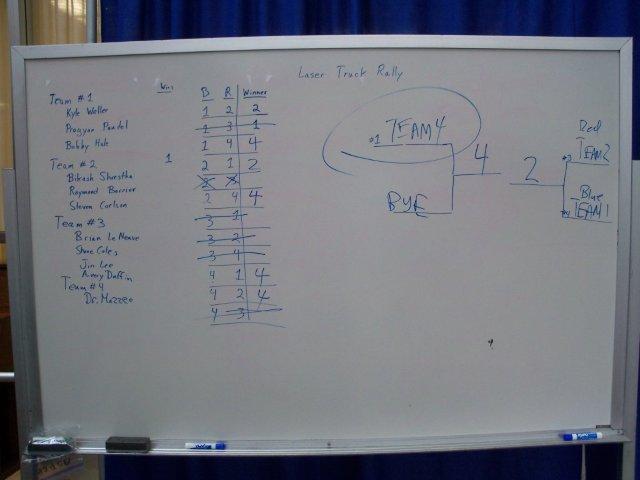 Laser Truck Rally
Win B R Winner
Team #1
Kyle Weller
Team #2 1
Bikash Shrestha
Raymond Barrier
Steven Carlson
Team #3
Brian Le Neave
Jim Lee
Avery Duffin
Team #4
Dr. Mazzeo
1 2 2
1 3 1
1 4 4
2 1 2
2 3
2 4 4
3 1
3 2
3 4
4 1 4
4 2 4
4 3
#1 TEAM 4
BYE
4
2
Red
TEAM 2
Blue
TEAM 1